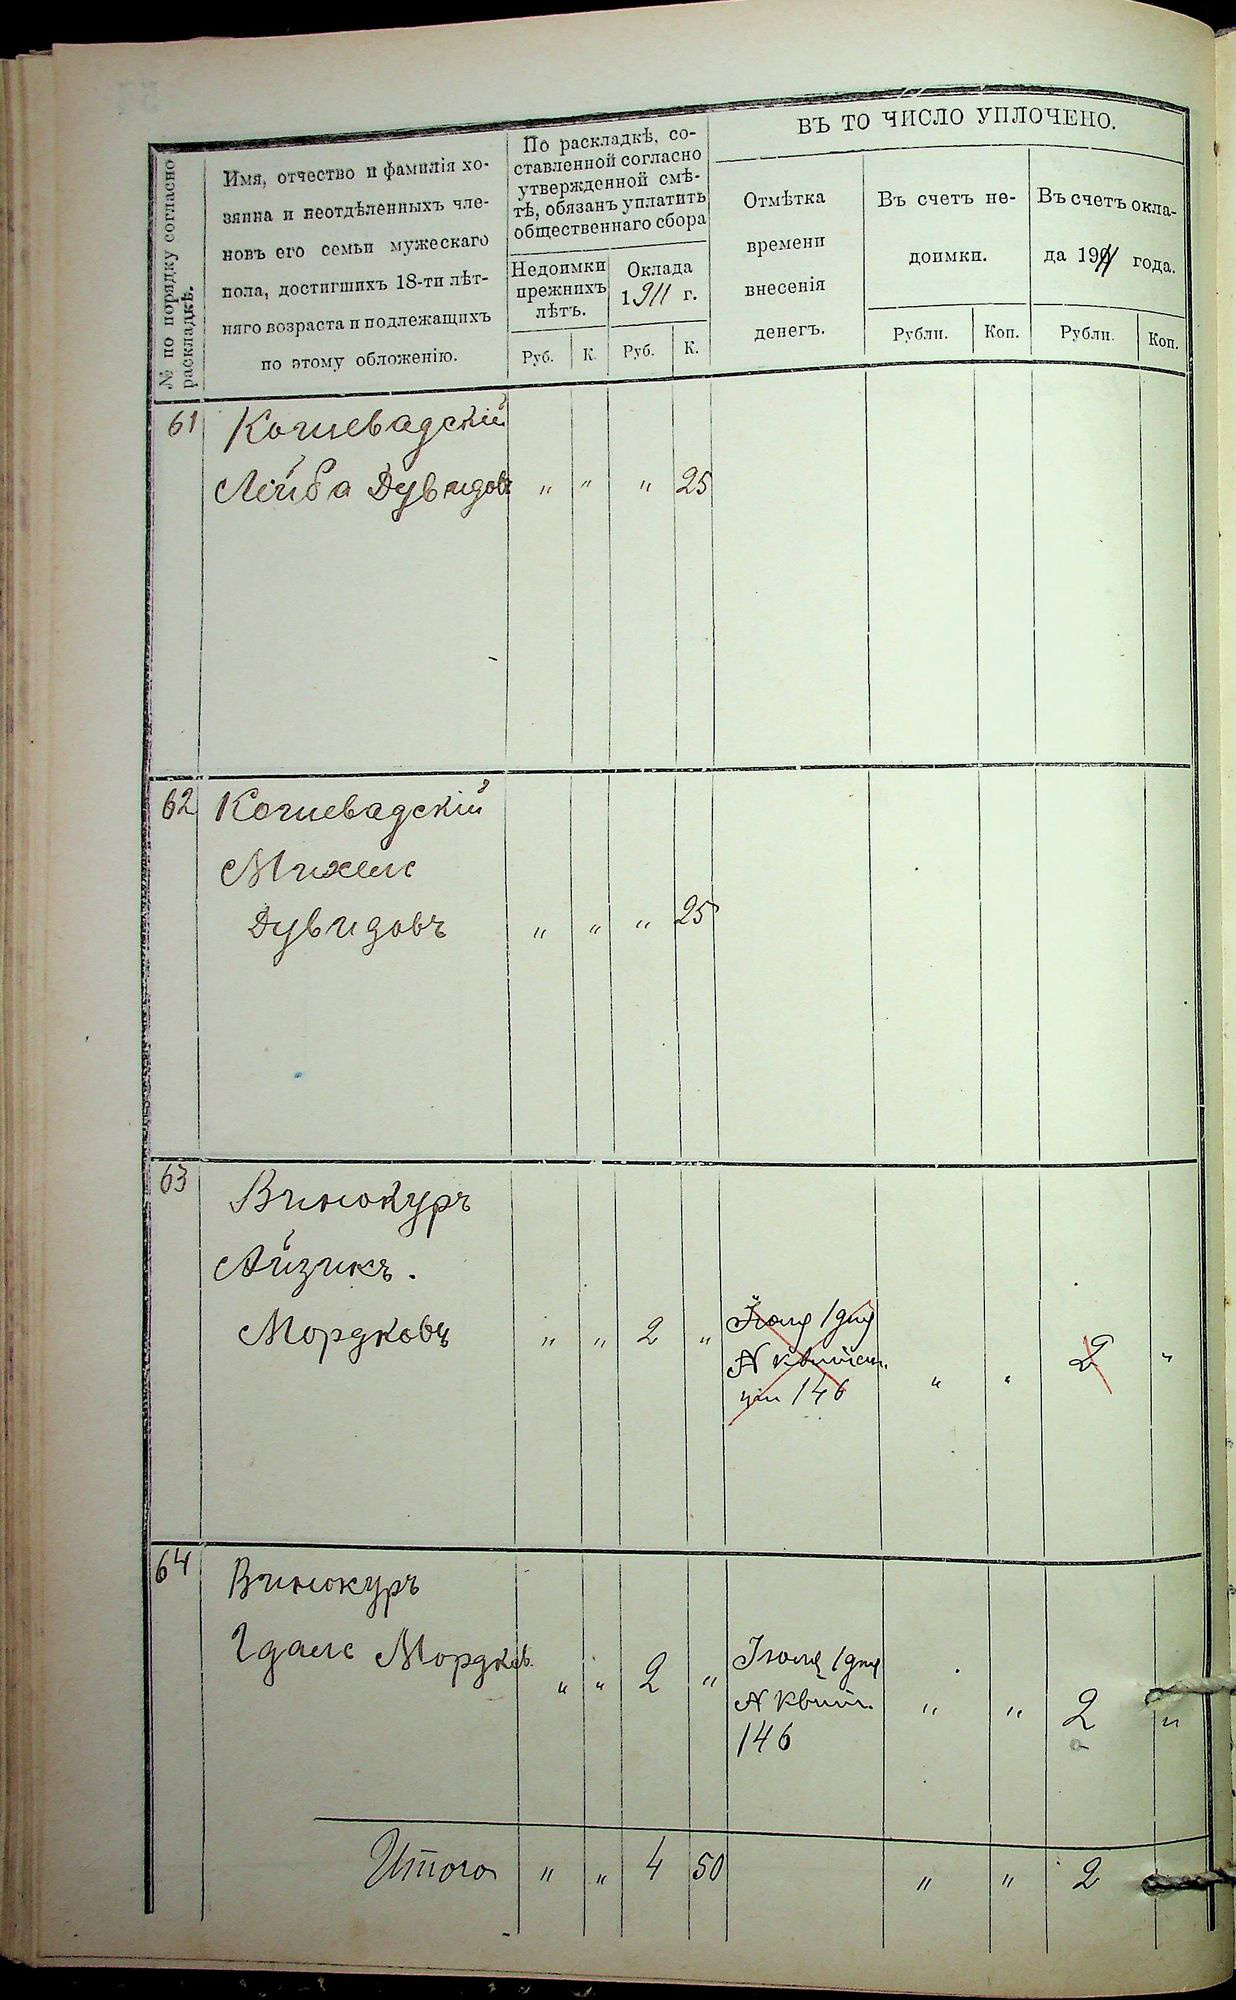 ВЪ ТО ЧИСЛО УПЛОЧЕНО.
№ по порядку согласно
раскладкѣ.
Имя, отчество и фамилія хо-
зяина и неотдѣленныхъ чле-
новъ его семьи мужескаго
пола, достигшихъ 18-ти лѣт-
няго возраста и подлежащихъ
по этому обложенію.
По раскладкѣ, со-
ставленной согласно
утвержденной смѣ-
тѣ, обязанъ уплатить
общественнаго сбора
Недоимки
прежнихъ
лѣтъ.
Оклада
1911 г.
Руб. К. Руб. К.
Отмѣтка
времени
внесенія
денегъ.
Въ счетъ не-
доимки.
Рубли. Коп.
Въ счетъ окла-
да 1911 года.
Рубли. Коп.
61 Когневадскій
Лейба Дувидовъ " " " 25
62 Когневадскій
Михель
Дувидовъ " " " 25
63 Винокуръ
Айзикъ.
Мордковъ " " 2 "
Іюля 1 дня
№ квитан.
ціи 146 " " 2 "
64 Винокуръ
Гдаль Мордков. " " 2 "
Іюля 1 дня
№ квит.
146 " " 2 "
Итого " " 4 50 " " 2